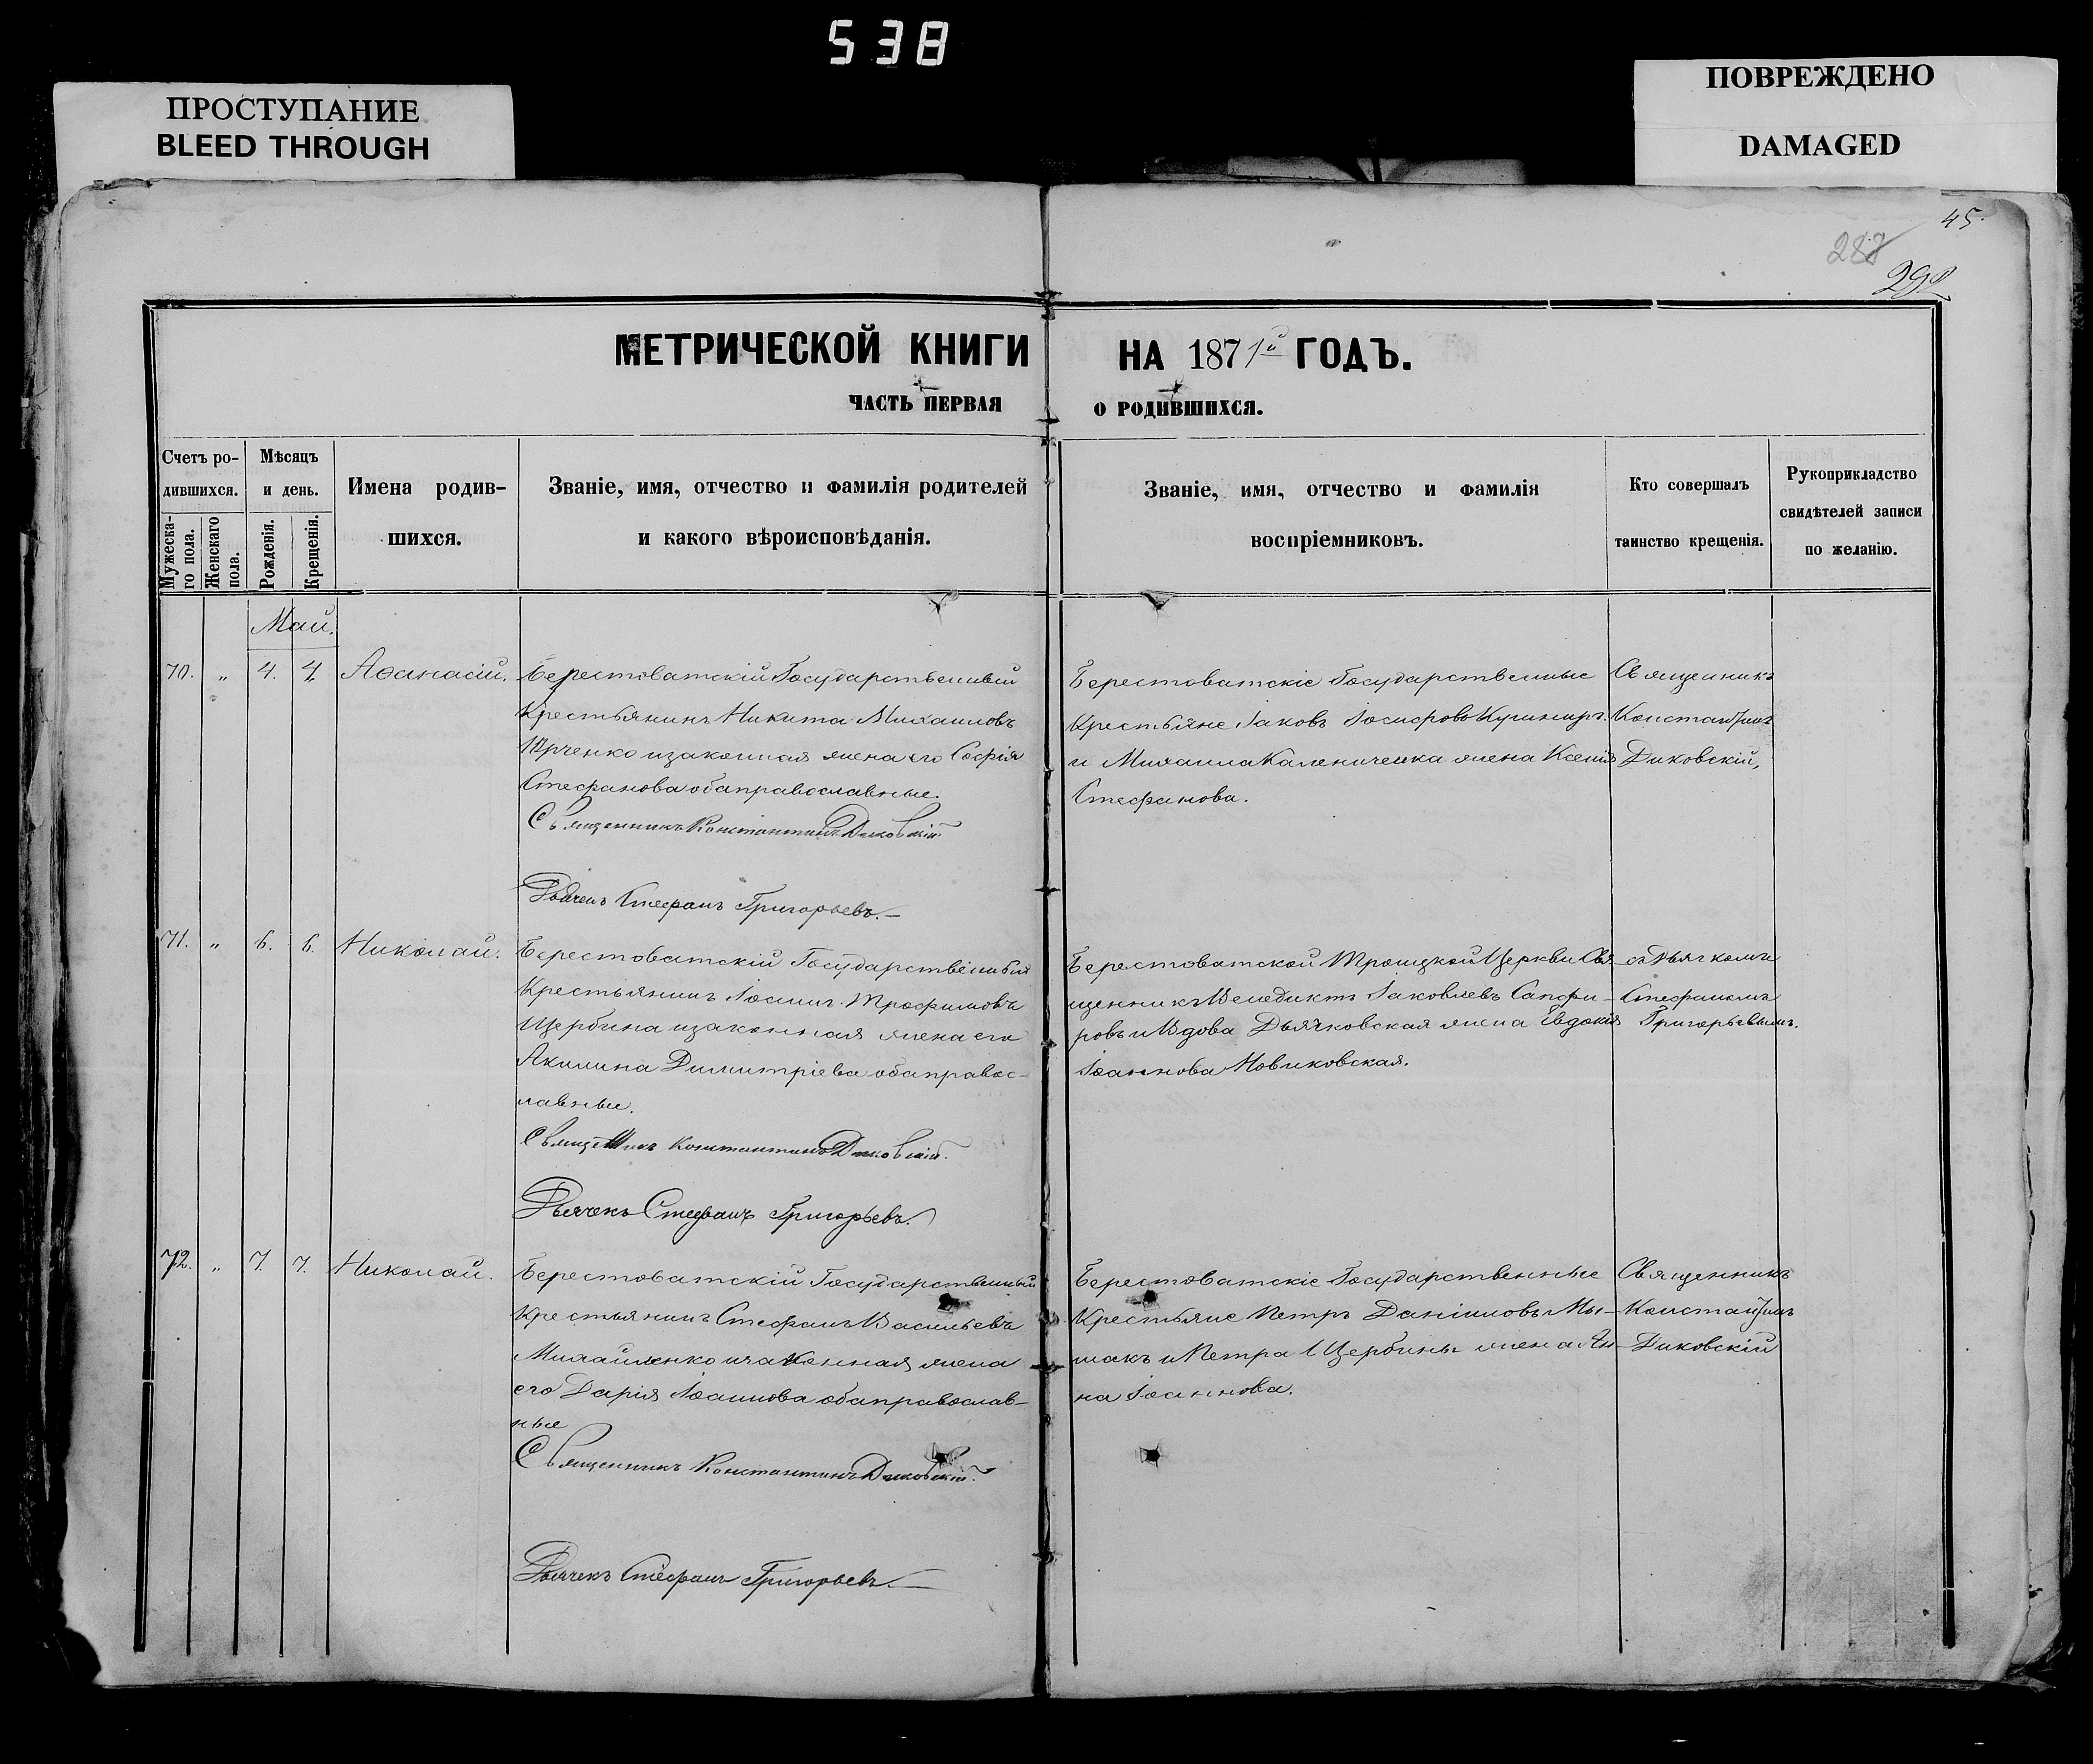 538
ПРОСТУПАНИЕ
BLEED THROUGH
ПОВРЕЖДЕНО
DAMAGED
45.
287
292
МЕТРИЧЕСКОЙ КНИГИ НА 1871й ГОДЪ.
ЧАСТЬ ПЕРВАЯ О РОДИВШИХСЯ.
Счетъ ро-
дившихся.
Мужеска-
го пола.
Женскаго
пола.
Мѣсяцъ
и день.
Рожденія.
Крещенія.
Имена родив-
шихся.
Званіе, имя, отчество и фамилія родителей
и какого вѣроисповѣданія.
Званіе, имя, отчество и фамилія
воспріемниковъ.
Кто совершалъ
таинство крещенія.
Рукоприкладство
свидѣтелей записи
по желанію.
Май.
70. " 4. 4. Аѳанасій.
Берестоватскій Государственный
Крестьянинъ Никита Михаиловъ
Юрченко и законная жена его Софія
Стефанова оба православные.
Священникъ Константинъ Диковскій
Дьячекъ Стефанъ Григорьевъ.
Берестоватскіе Государственные
Крестьяне Іаковъ Іосифовъ Кушниръ
и Михаила Калениченка жена Ксенія
Стефанова.
Священникъ
Константинъ
Диковскій,
71. " 6. 6. Николай.
Берестоватскій Государственный
Крестьянинъ Іоаннъ Трофимовъ
Щербина и законная жена его
Акилина Димитріева оба правос-
лавные.
Священникъ Константинъ Диковскій.
Дьячекъ Стефанъ Григорьевъ.
Берестоватской Троицкой Церкви Свя-
щенникъ Венедиктъ Іаковлевъ Сапфи-
ровъ и Вдова Дьячковская жена Евдокія
Іоаннова Новиковская.
съ Дьячкомъ
Стефаномъ
Григорьевымъ.
72. " 7. 7. Николай.
Берестоватскій Государственный
Крестьянинъ Стефанъ Васильевъ
Михайленко и законная жена
его Дарія Іоаннова оба православ-
ные
Священникъ Константинъ Диковскій.
Дьячекъ Стефанъ Григорьевъ.
Берестоватскіе Государственные
Крестьяне Петръ Даніиловъ Мы-
шакъ и Петра Щербины жена Ан-
на Іоаннова.
Священникъ
Константинъ
Диковскій